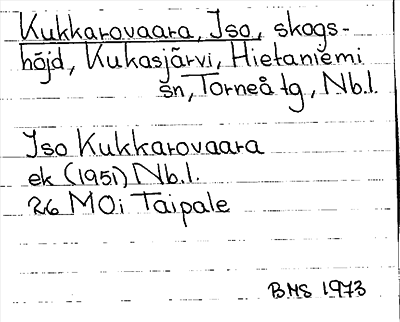 Kukkarovaara, Iso, skogs-
höjd, Kukasjärvi, Hietaniemi
sn, Torneå tg, Nb.l.
Iso Kukkarovaara
ek (1951) Nb.l.
26 M0i Taipale
BMS 1973